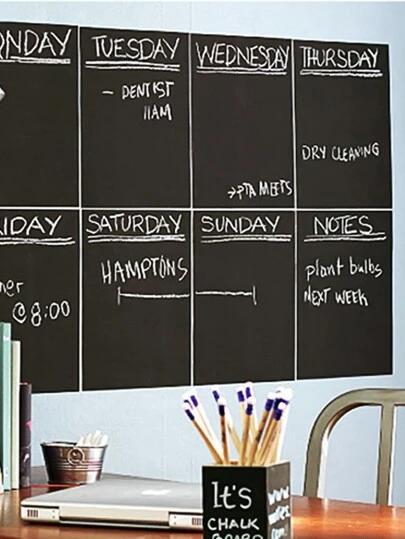 NDAY TUESDAY WEDNESDAY THURSDAY
- DENTIST
11AM
DRY CLEANING
→PTA MEETS
IDAY SATURDAY SUNDAY NOTES
HAMPTONS
ner
@8:00
plant bulbs
NEXT WEEK
It's
CHALK
BOARD